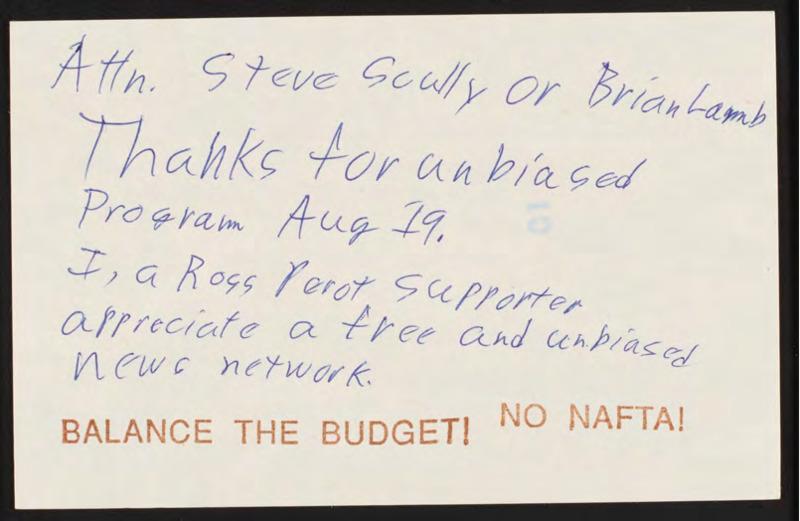 Attn. Steve Scully or Brian Lamb
Thanks for unbiased
Program Aug 19.
I, a Ross Perot supporter
appreciate a free and unbiased
news network.
BALANCE THE BUDGET! NO NAFTA!